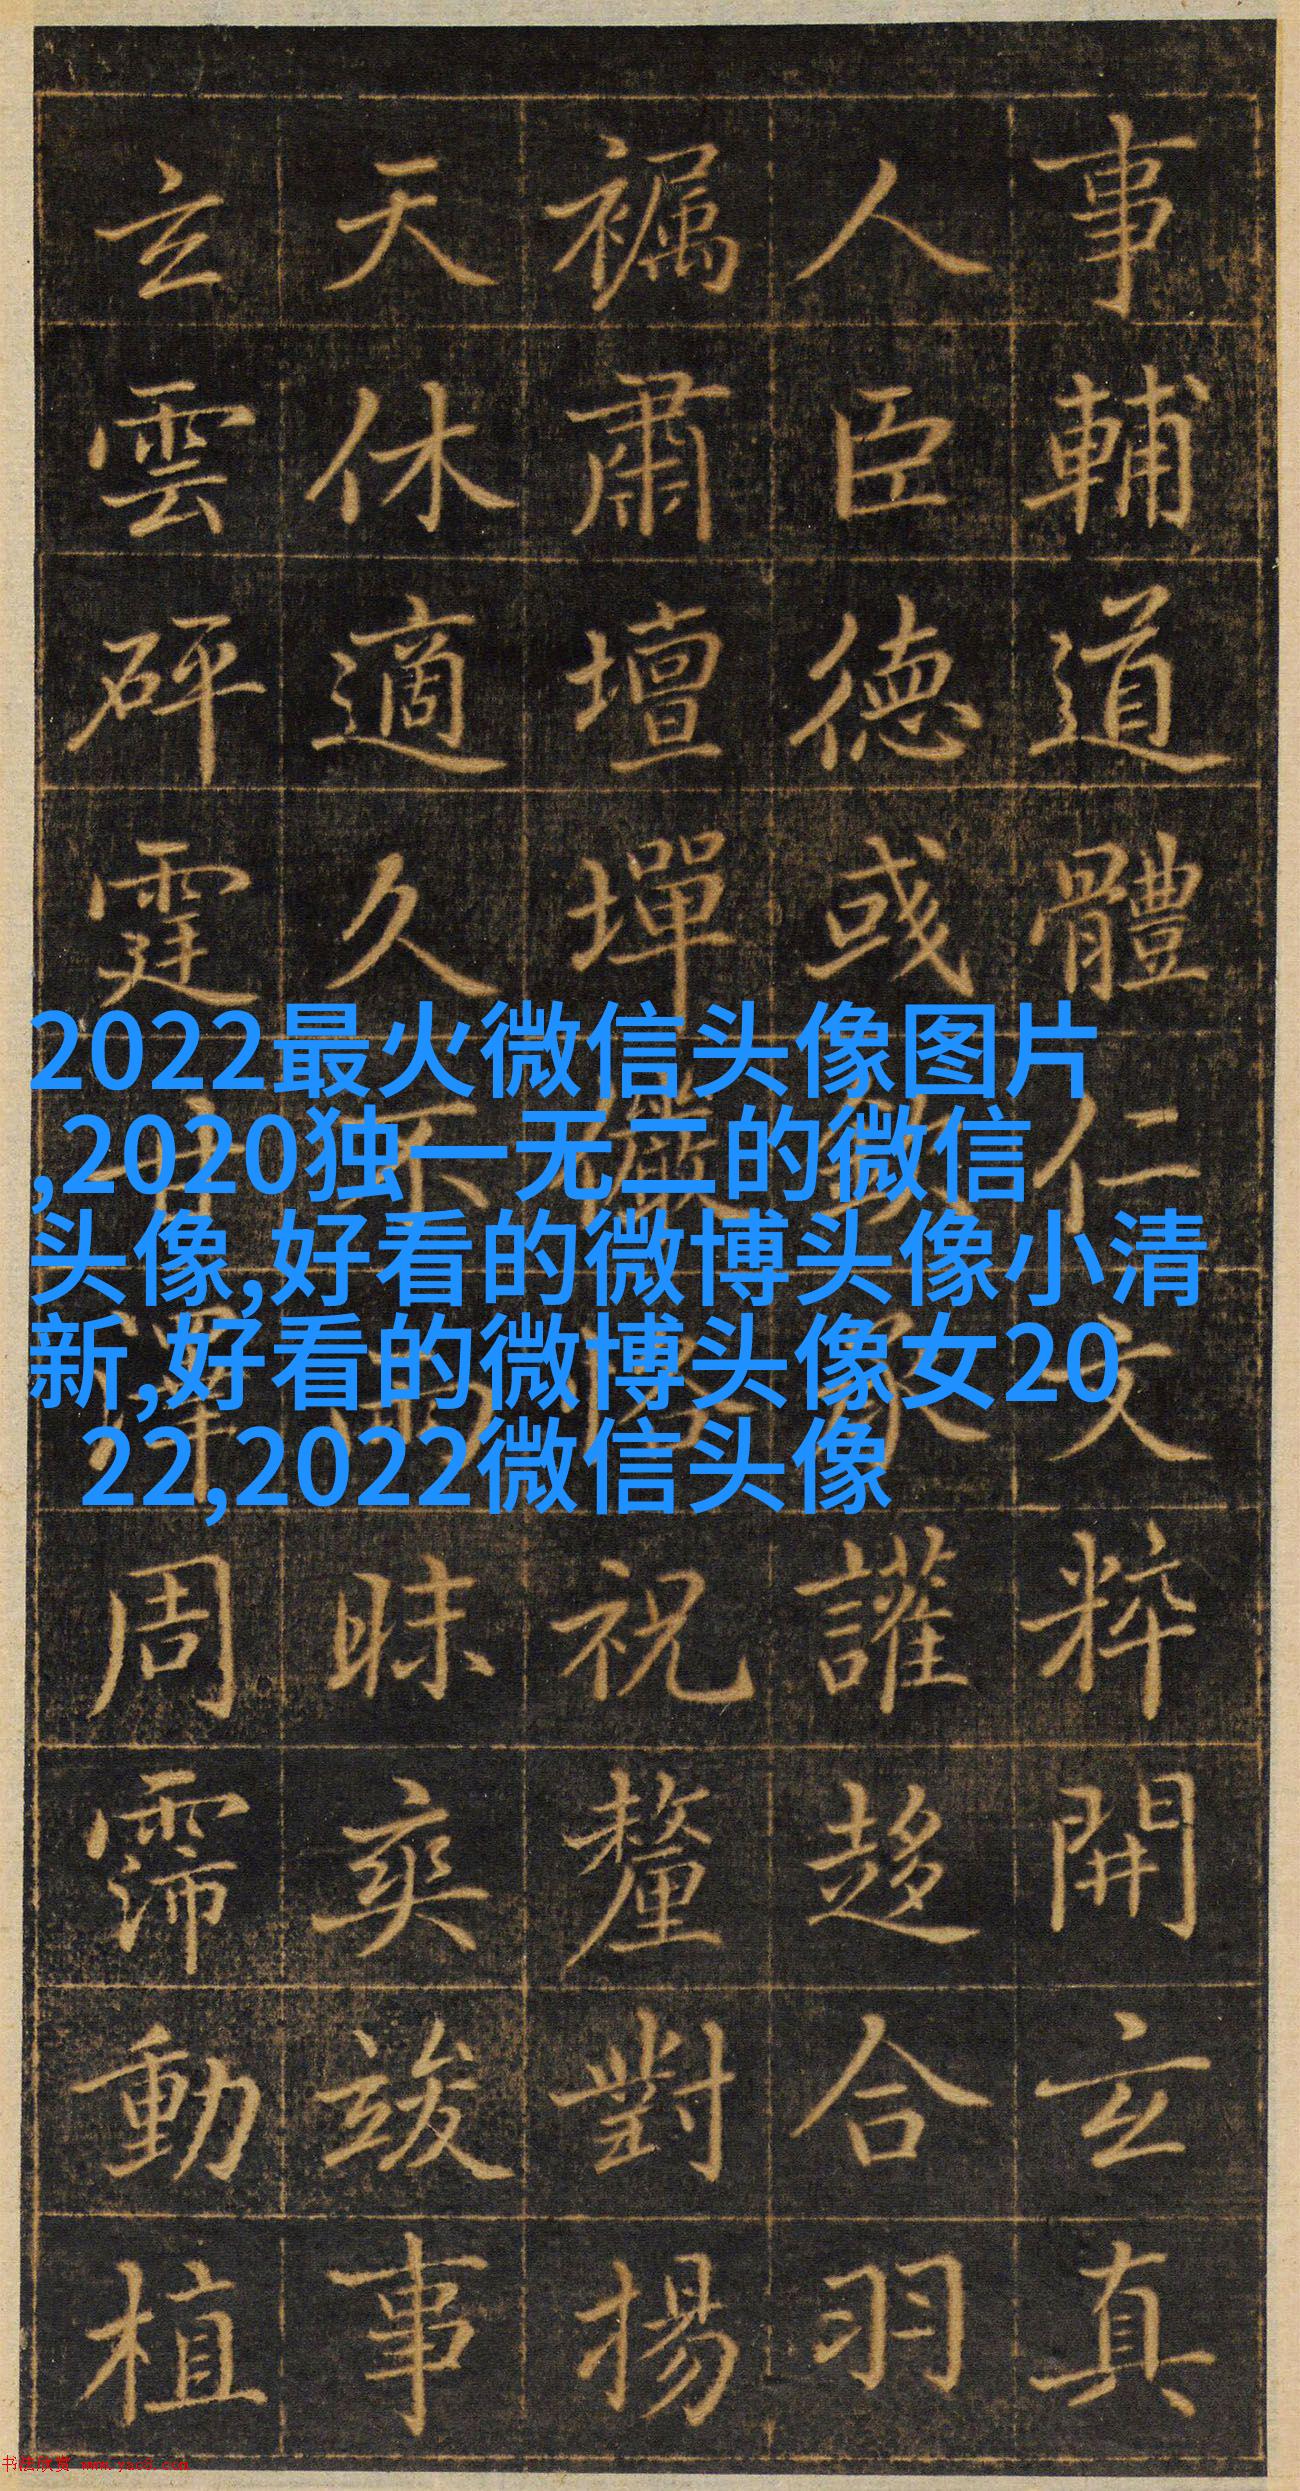 2022最火微信头像图片
,2020独一无二的微信
头像,好看的微博头像小清
新,好看的微博头像女20
22,2022微信头像
事輔道體仁文粹開玄真
人臣德或讙趍合羽
肅壇墠祝釐對揚
天休適久不雨昧爽竣事
玄雲砰霆甘澤周霈動植
书法欣赏 www.yac8.com